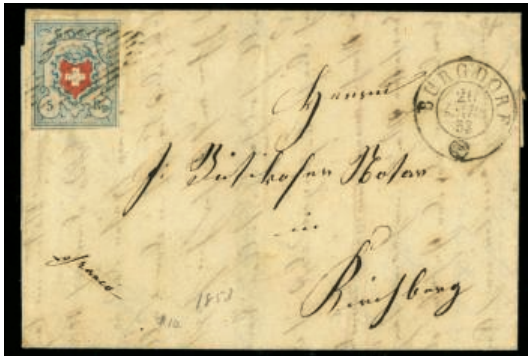 5
BURGDORF
53
Herrn
J. Bütikofer Notar
in
Kirchberg
franco
1853